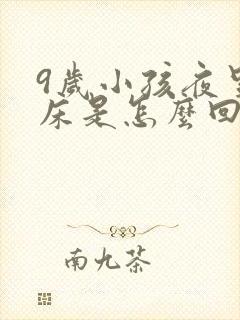 9歲小孩夜
床是怎麼回
南九茶